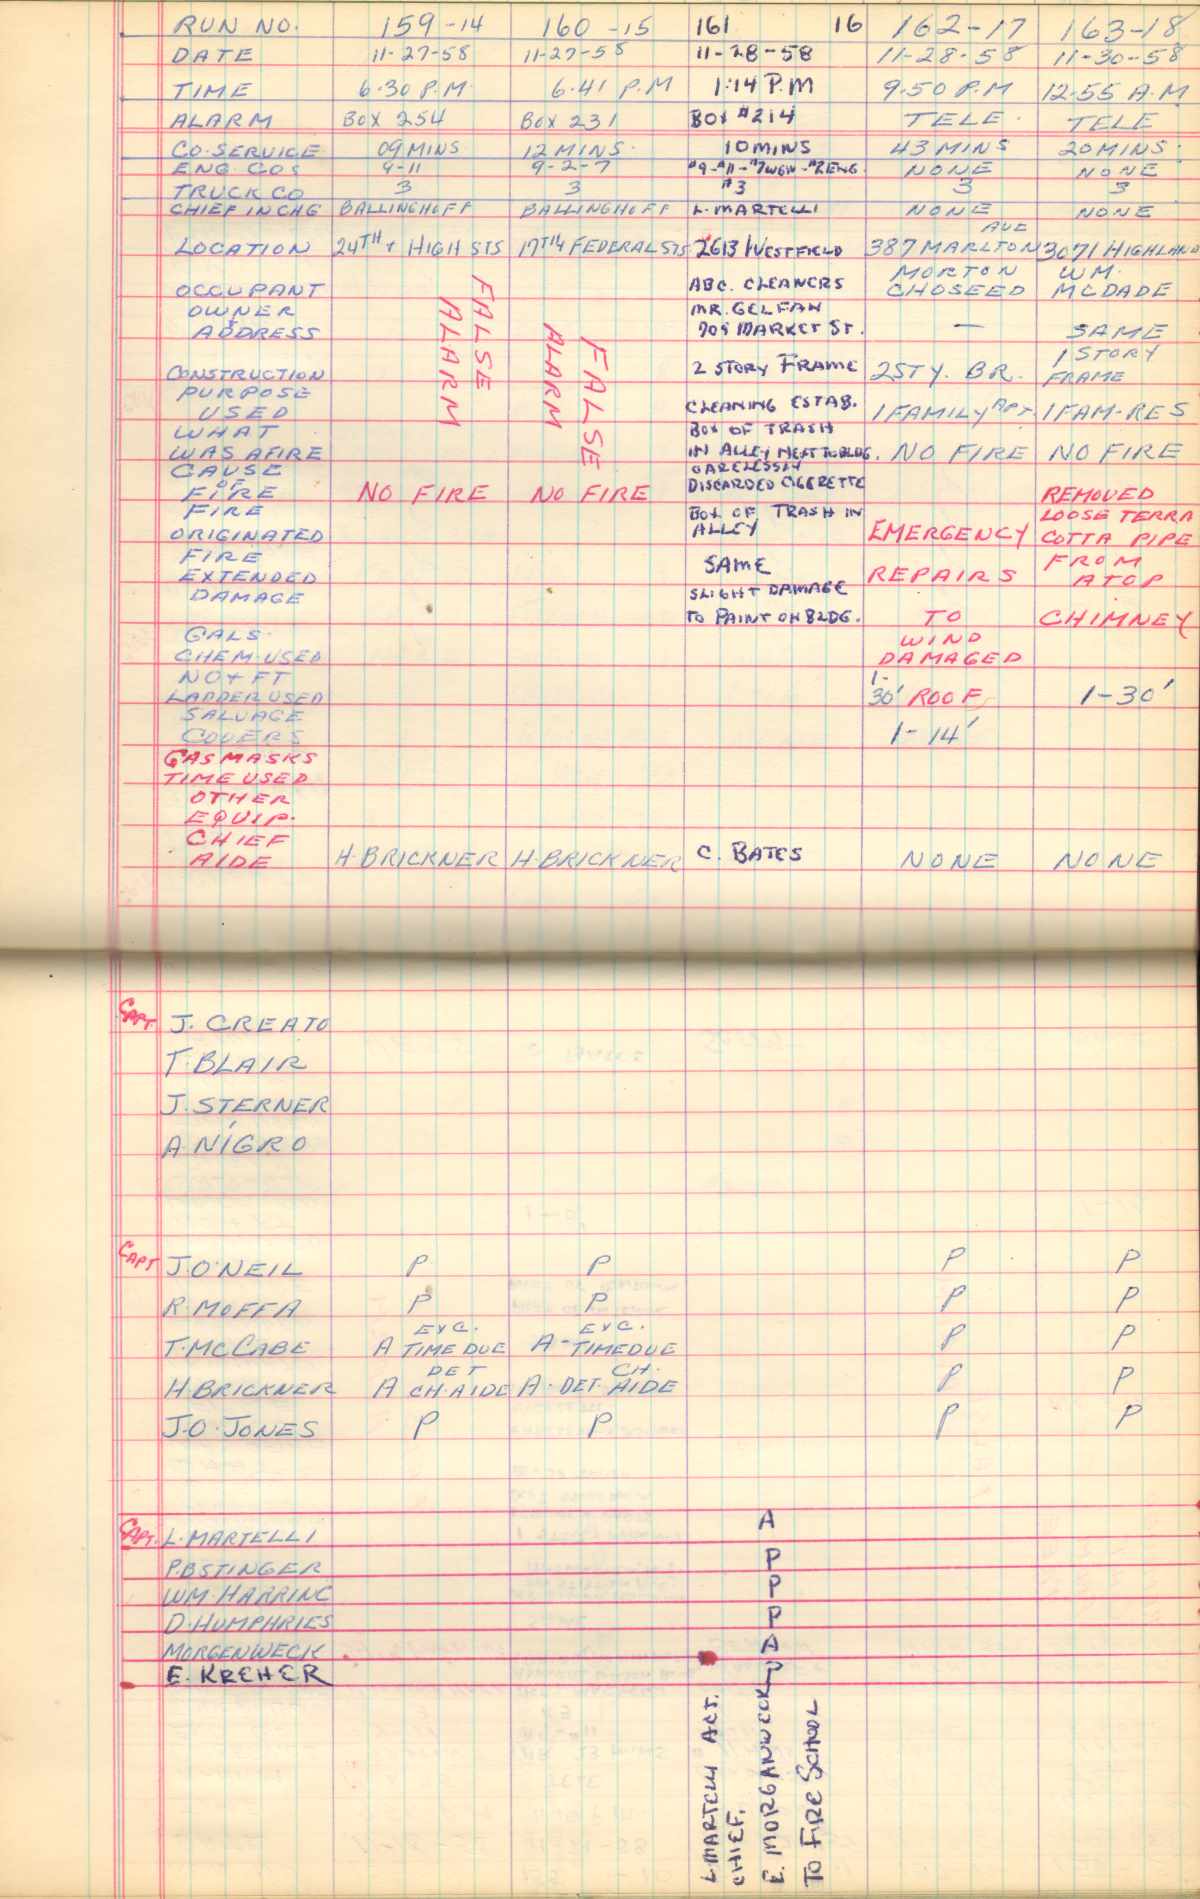 RUN NO. 159-14 160-15 161 16 162-17 163-18
DATE 11-27-58 11-27-58 11-28-58 11-28-58 11-30-58
TIME 6.30 P.M. 6.41 P.M 1:14 P.M 9.50 P.M 12.55 A.M
ALARM BOX 254 BOX 231 BOX #214 TELE. TELE
CO. SERVICE 09 MINS 12 MINS. 10 MINS 43 MINS 20 MINS.
ENG. COS 9-11 9-2-7 #9-#11-#7 WGN-#2 ENG. NONE NONE
TRUCK CO 3 3 #3 3 3
CHIEF IN CHG BALLINGHOFF BALLINGHOFF L. MARTELLI NONE NONE
AVE
LOCATION 24TH & HIGH STS 17TH FEDERAL STS 2613 WESTFIELD 387 MARLTON 3071 HIGHLAND
MORTON WM.
OCCUPANT ABC. CLEANERS CHOSEED MCDADE
OWNER MR. GELFAN
& ADDRESS 709 MARKET ST. — SAME
FALSE ALARM
FALSE ALARM
1 STORY
CONSTRUCTION 2 STORY FRAME 2 STY. BR. FRAME
PURPOSE
USED CLEANING ESTAB. 1 FAMILY APT. 1 FAM-RES
WHAT BOX OF TRASH
WAS AFIRE IN ALLEY NEXT TO BLDG. NO FIRE NO FIRE
CAUSE CARELESSLY
OF
FIRE NO FIRE NO FIRE DISCARDED CIGERETTE REMOVED
FIRE BOX OF TRASH IN LOOSE TERRA
ORIGINATED ALLEY EMERGENCY COTTA PIPE
FIRE SAME FROM
EXTENDED REPAIRS ATOP
DAMAGE SLIGHT DAMAGE
TO PAINT ON BLDG. TO CHIMNEY
GALS. WIND
CHEM. USED DAMAGED
NO & FT 1-
LADDER USED 30' ROOF 1-30'
SALVAGE
COVERS 1-14'
GAS MASKS
TIME USED
OTHER
EQUIP.
CHIEF
AIDE H. BRICKNER H. BRICKNER C. BATES NONE NONE
CAPT J. CREATO
T. BLAIR
J. STERNER
A NIGRO
CAPT J. O'NEIL P P P P
R. MOFFA P P P P
EXC. EXC.
T. MCCABE A TIME DUE A-TIME DUE P P
DET CH.
H. BRICKNER A CH. AIDE A. DET. AIDE P P
J. O. JONES P P P P
CAPT. L. MARTELLI A
P. BSTINGER P
WM. HARRING P
D. HUMPHRIES P
MORGENWECK A
E. KREHER P
L. MARTELLI ACT.
CHIEF.
E. MORGANWECK
TO FIRE SCHOOL